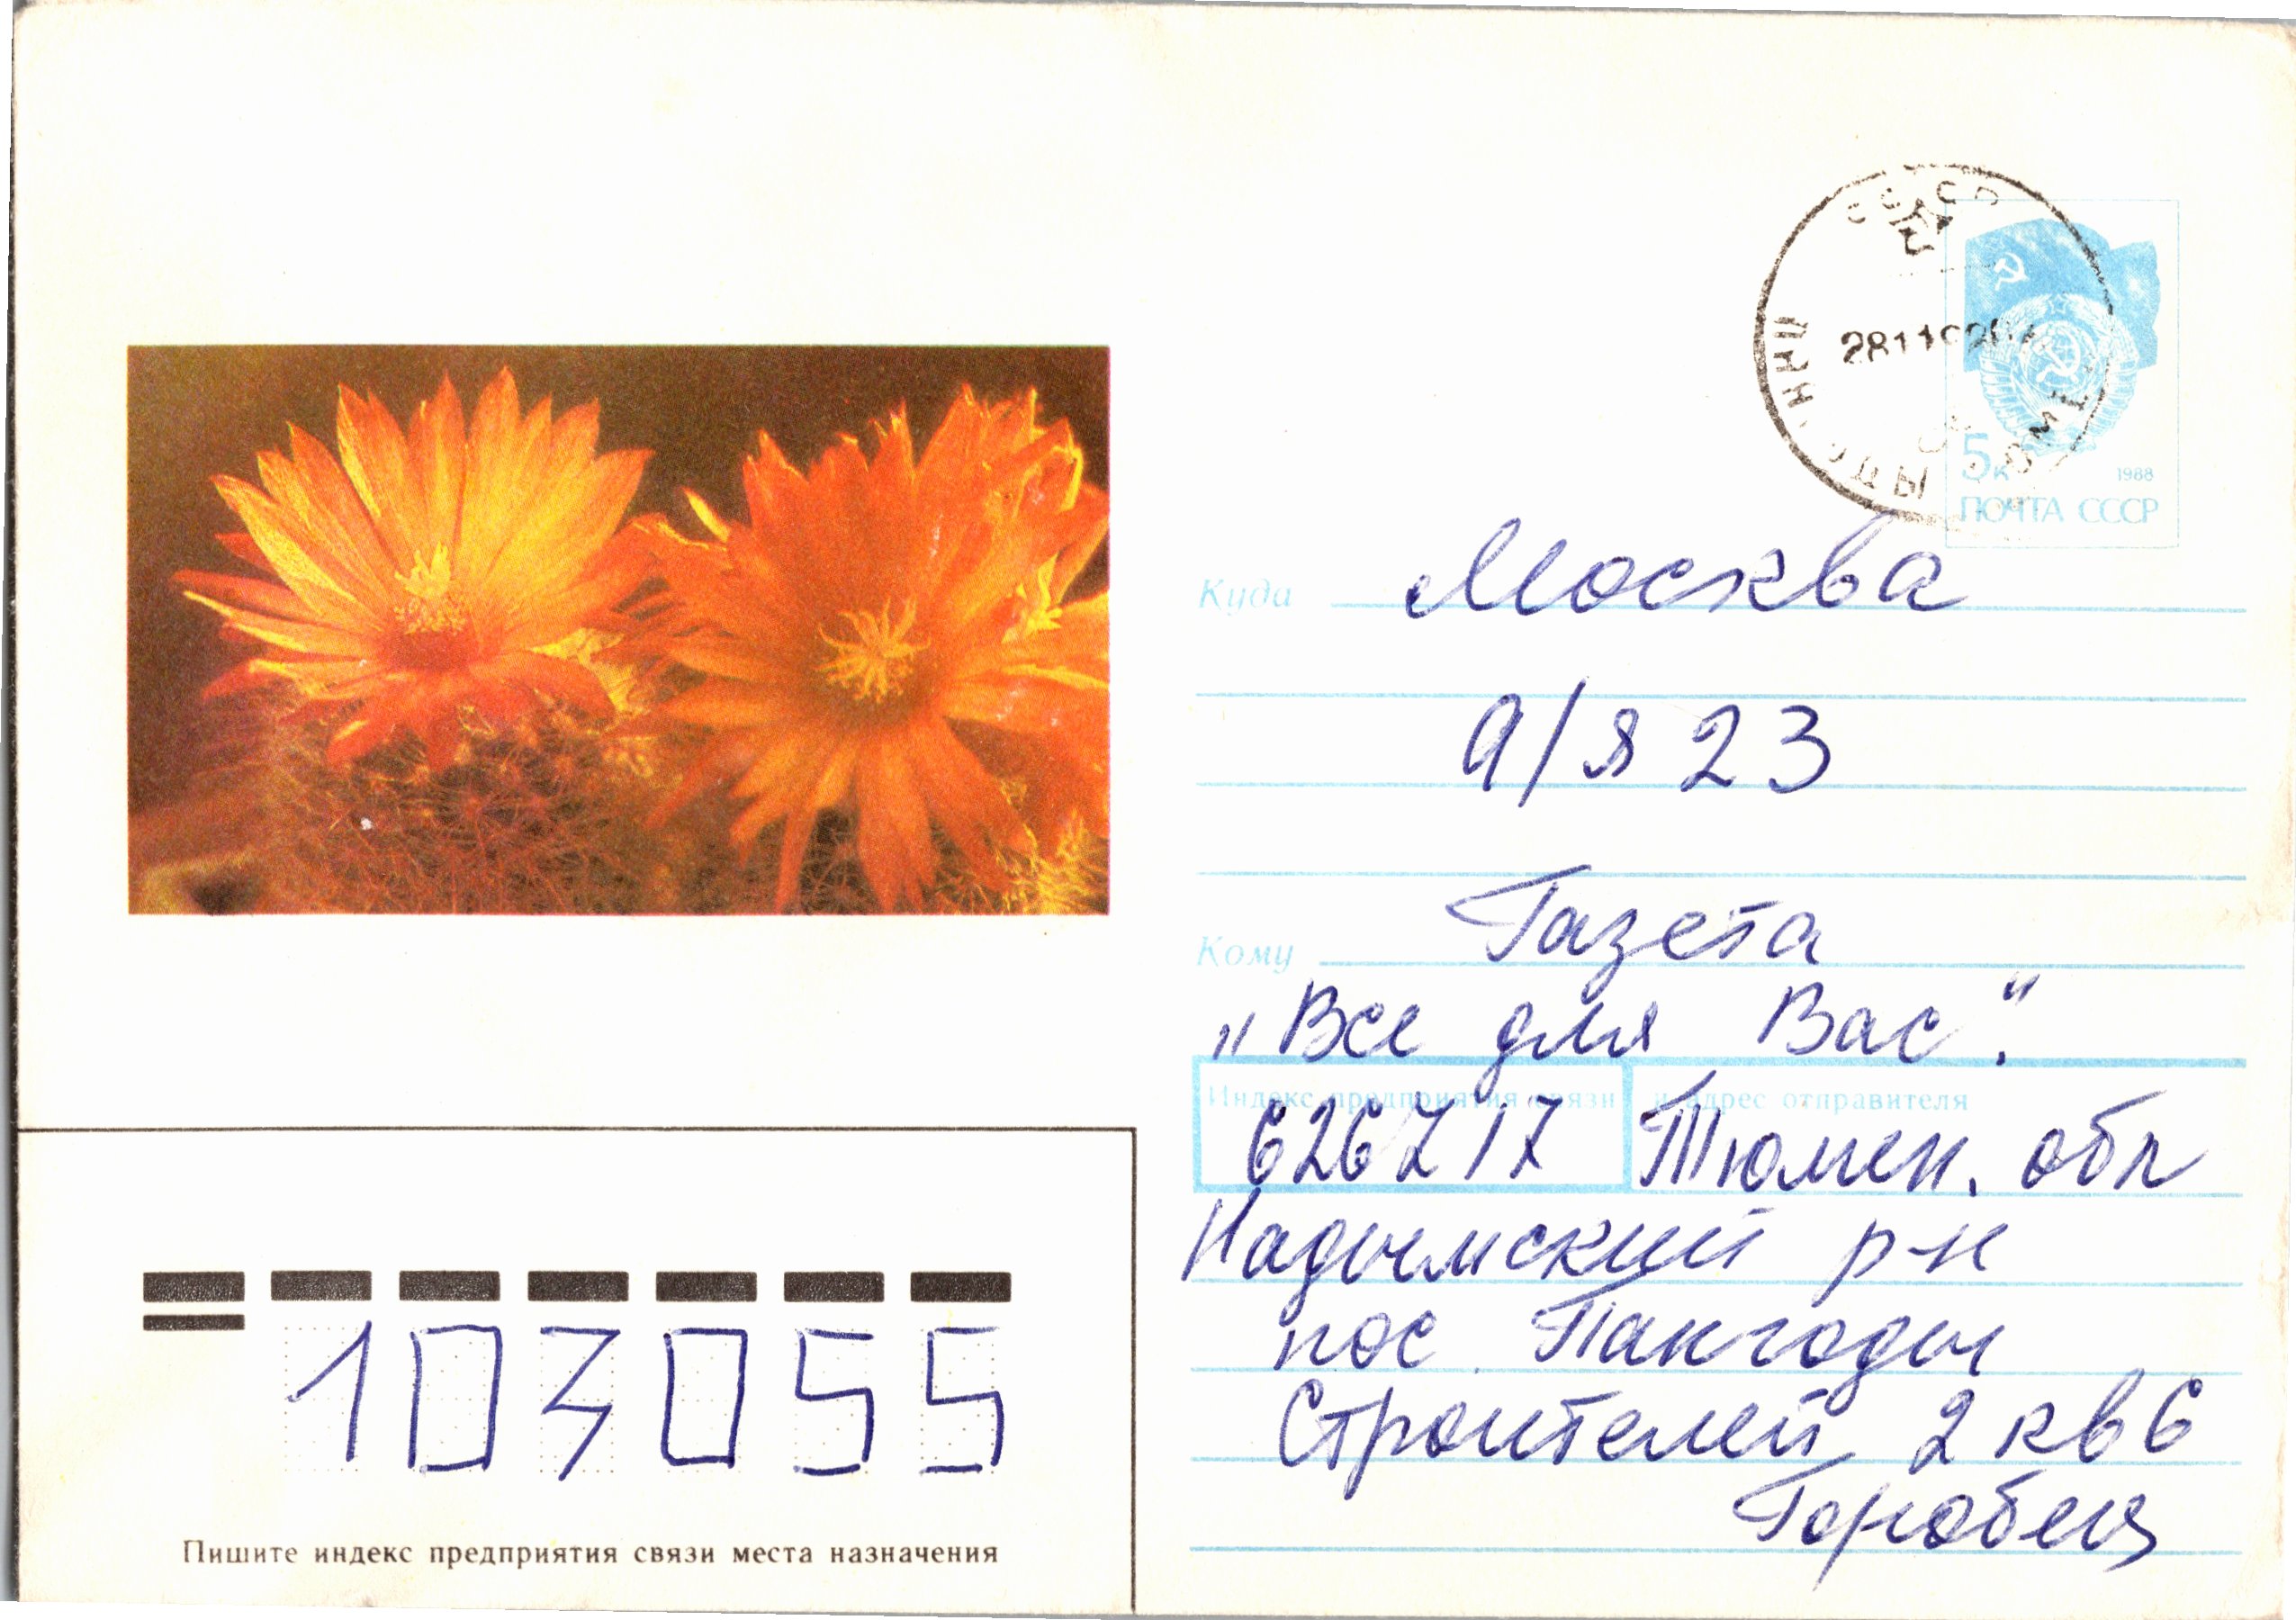 СССР
28 11 9
5к
1988
ПОЧТА СССР
Куда Москва
а/я 23
Кому Газета
„Все для Вас“.
Индекс предприятия связи и адрес отправителя
626717 Тюмен. обл
Надымский р-н
пос. Пангоды
Строителей 2 кв 6
103055
Пишите индекс предприятия связи места назначения